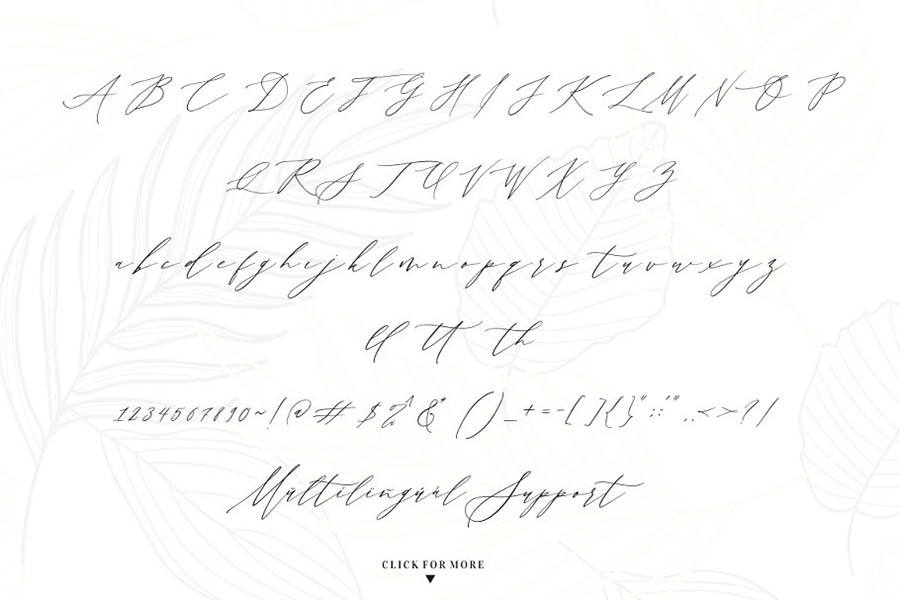 A B C D E F G H I J K L M N O P
Q R S T U V W X Y Z
a b c d e f g h i j k l m n o p q r s t u v w x y z
ll tt th
1234567890~!@#$%^&*()_+=-[]{}":;'",.<>?/
Mültilingüál Support
CLICK FOR MORE